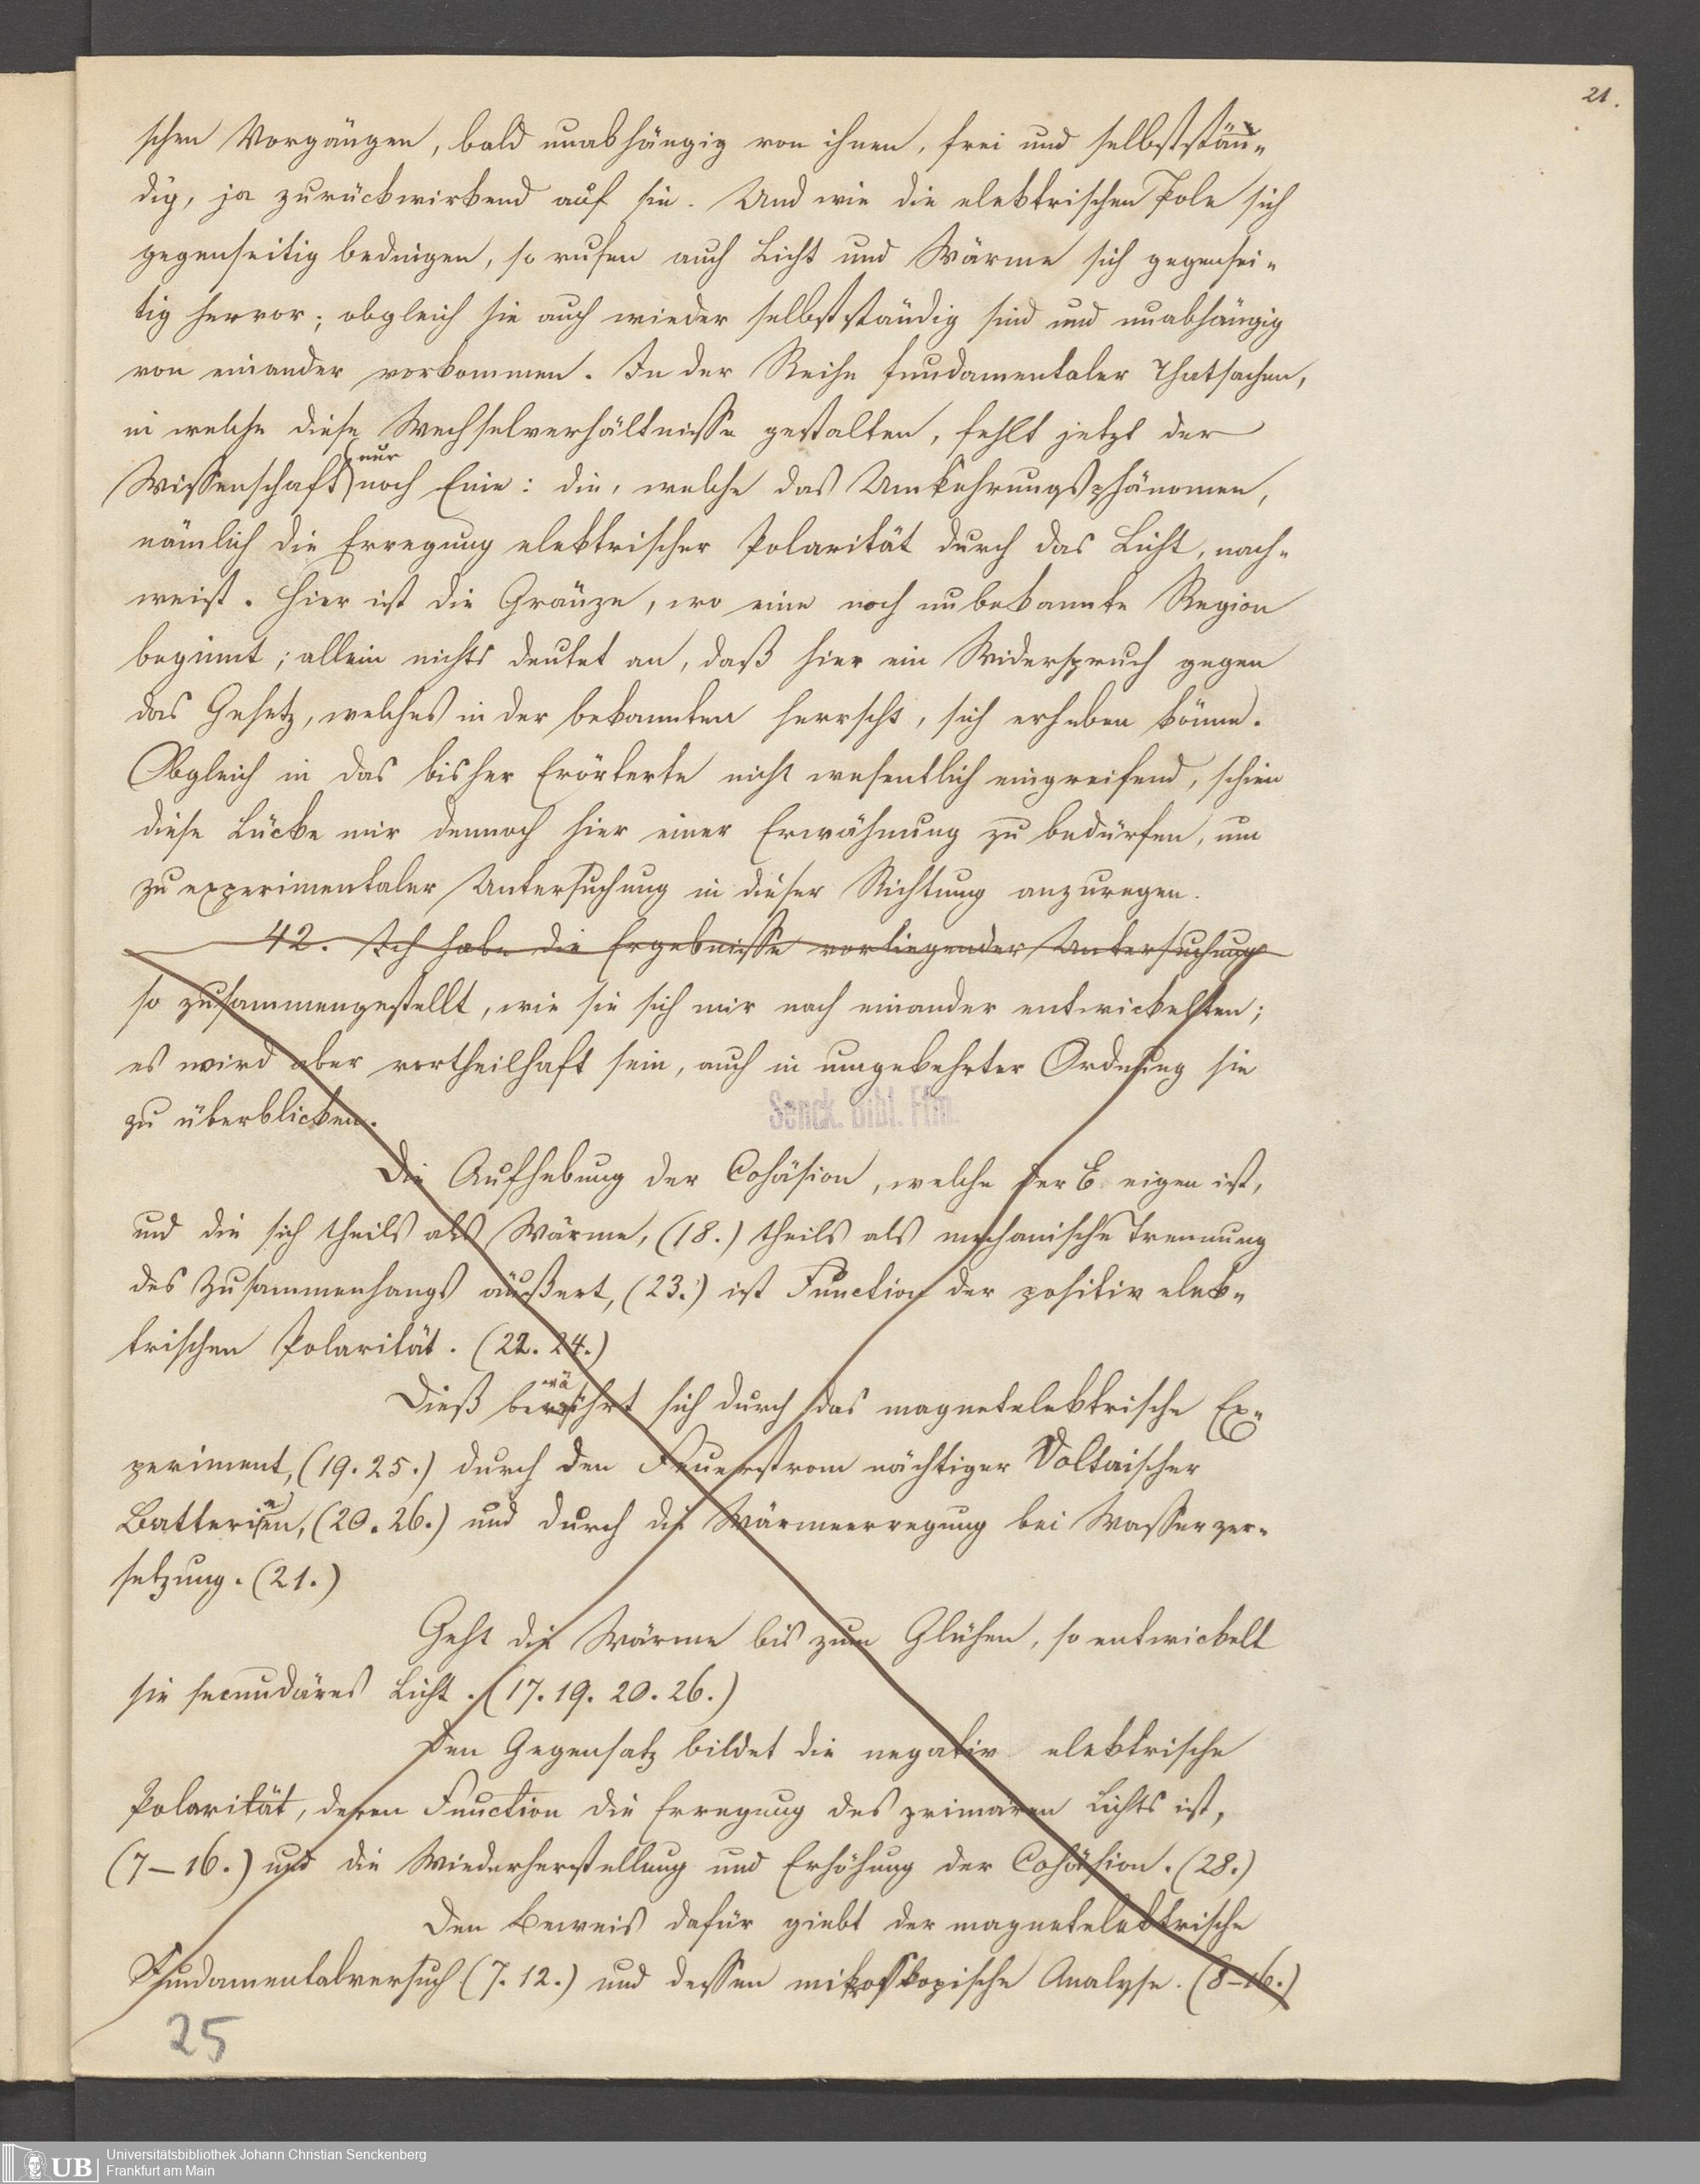 21.
schen Vorgängen, bald unabhängig von ihnen, frei und selbststän-
dig, ja zurückwirkend auf sie. Und wie die elektrischen Pole sich
gegenseitig bedingen, so rufen auch Licht und Wärme sich gegensei-
tig hervor; obgleich sie auch wieder selbstständig sind und unabhängig
von einander vorkommen. In der Reihe fundamentaler Thatsachen,
in welche diese Wechselverhältnisse gestalten, fehlt jetzt der
nur
Wissenschaft noch Eine: die, welche das Umkehrungsphänomen,
nämlich die Erregung elektrischer Polarität durch das Licht, nach-
weist. Hier ist die Gränze, wo eine noch unbekannte Region
beginnt; allein nichts deutet an, daß hier ein Widerspruch gegen
das Gesetz, welches in der bekannten herrscht, sich erheben könne.
Obgleich in das bisher Erörterte nicht wesentlich eingreifend, schien
diese Lücke mir dennoch hier einer Erwähnung zu bedürfen, um
zu experimentaler Untersuchung in dieser Richtung anzuregen.
42. Ich habe die Ergebnisse vorliegender Untersuchung
so zusammengestellt, wie sie sich mir nach einander entwickelten;
es wird aber vortheilhaft sein, auch in umgekehrter Ordnung sie
zu überblicken.
Senck. Bibl. Ffm.
Die Aufhebung der Cohäsion, welche der E. eigen ist,
und die sich theils als Wärme, (18.) theils als mechanische Trennung
des Zusammenhangs äußert, (23.) ist Function der positiv elek-
trischen Polarität. (22. 24.)
wä
Dieß bewährt sich durch das magnetelektrische Ex-
periment, (19. 25.) durch den Feuerstrom mächtiger Voltaischer
Batterien, (20. 26.) und durch die Wärmeerregung bei Wasserzer-
setzung. (21.)
Geht die Wärme bis zum Glühen, so entwickelt
sie secundäres Licht. (17. 19. 20. 26.)
Den Gegensatz bildet die negativ elektrische
Polarität, deren Function die Erregung des primären Lichts ist,
(7–16.) und die Wiederherstellung und Erhöhung der Cohäsion. (28.)
Den Beweis dafür giebt der magnetelektrische
Fundamentalversuch (7. 12.) und dessen mikroskopische Analyse. (8–16.)
25
UB
Universitätsbibliothek Johann Christian Senckenberg
Frankfurt am Main